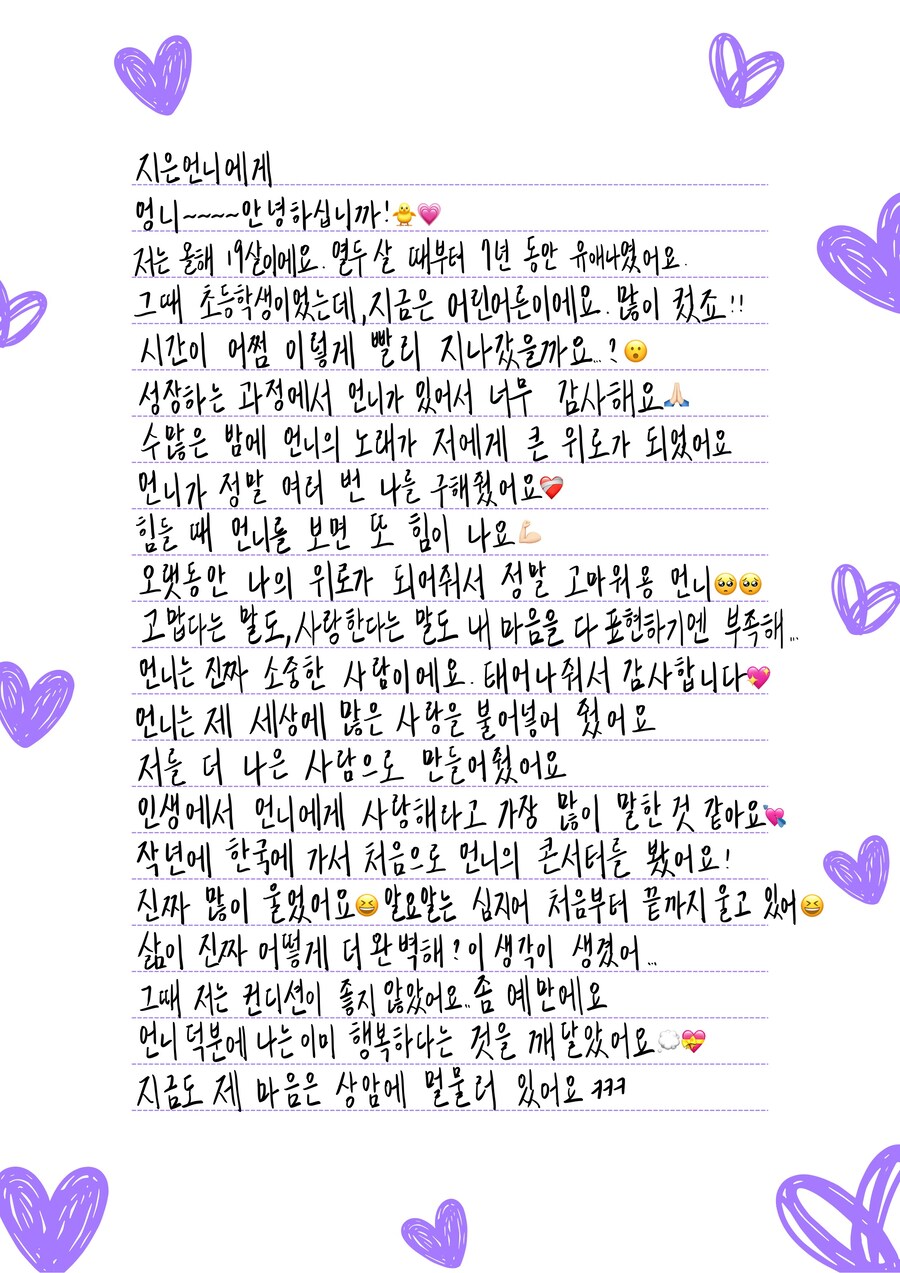 지은언니에게
멍니~~~~안녕하십니까!🐥💗
저는 올해 19살이에요. 열두 살 때부터 7년 동안 유애나였어요.
그때 초등학생이었는데,지금은 어린어른이에요. 많이 컸죠!!
시간이 어쩜 이렇게 빨리 지나갔을까요...?😮
성장하는 과정에서 언니가 있어서 너무 감사해요🙏🏻
수많은 밤에 언니의 노래가 저에게 큰 위로가 되었어요
언니가 정말 여러 번 나를 구해줬어요❤️‍🩹
힘들 때 언니를 보면 또 힘이 나요💪🏻
오랫동안 나의 위로가 되어줘서 정말 고마워용 언니🥺🥺
고맙다는 말도,사랑한다는 말도 내 마음을 다 표현하기엔 부족해...
언니는 진짜 소중한 사람이에요. 태어나줘서 감사합니다💖
언니는 제 세상에 많은 사랑을 불어넣어 줬어요
저를 더 나은 사람으로 만들어줬어요
인생에서 언니에게 사랑해라고 가장 많이 말한 것 같아요💘
작년에 한국에 가서 처음으로 언니의 콘서터를 봤어요!
진짜 많이 울었어요😆알요알는 심지어 처음부터 끝까지 울고 있어😆
삶이 진짜 어떻게 더 완벽해? 이 생각이 생겼어...
그때 저는 컨디션이 좋지 않았어요..좀 예만에요
언니 덕분에 나는 이미 행복하다는 것을 깨달았어요💭💝
지금도 제 마음은 상암에 멀물러 있어요 ㅋㅋㅋ